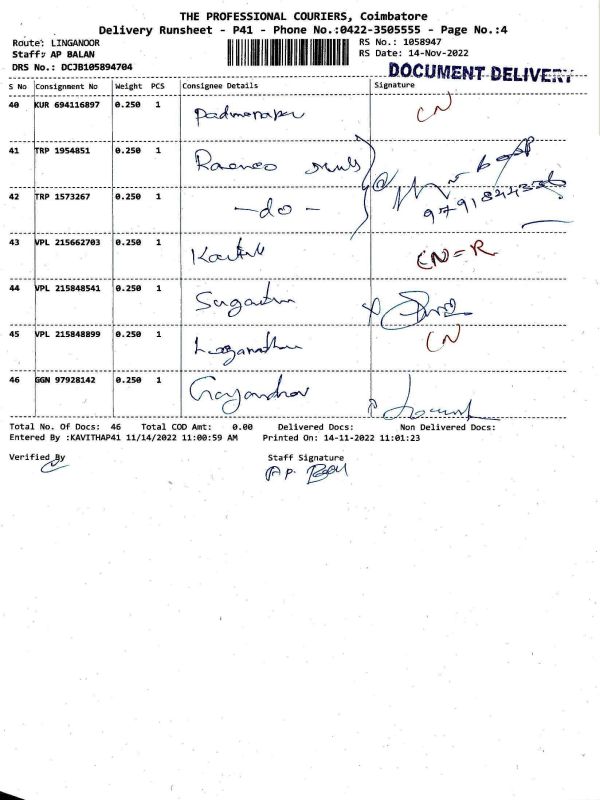 THE PROFESSIONAL COURIERS, Coimbatore
Delivery Runsheet - P41 - Phone No.:0422-3505555 - Page No.:4
Route: LINGANOOR RS No.: 1058947
Staff: AP BALAN RS Date: 14-Nov-2022
DRS No.: DCJB105894704
DOCUMENT DELIVERY
S No Consignment No Weight PCS Consignee Details Signature
40 KUR 694116897 0.250 1 CN
41 TRP 1954851 0.250 1
42 TRP 1573267 0.250 1 -do-
43 VPL 215662703 0.250 1 CN=R
44 VPL 215848541 0.250 1
45 VPL 215848899 0.250 1 CN
46 GGN 97928142 0.250 1
Total No. Of Docs: 46 Total COD Amt: 0.00 Delivered Docs: Non Delivered Docs:
Entered By :KAVITHAP41 11/14/2022 11:00:59 AM Printed On: 14-11-2022 11:01:23
Verified By Staff Signature